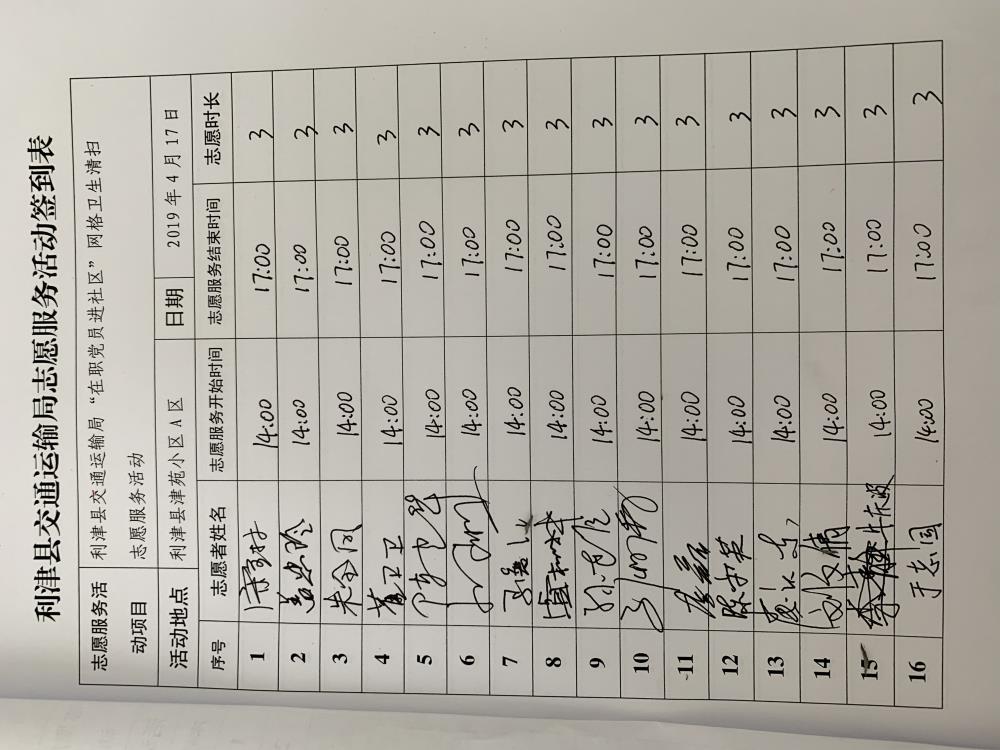 利津县交通运输局志愿服务活动签到表
志愿服务活动项目 利津县交通运输局“在职党员进社区”网格卫生清扫志愿服务活动
活动地点 利津县津苑小区 A 区 日期 2019 年 4 月 17 日
序号 志愿者姓名 志愿服务开始时间 志愿服务结束时间 志愿时长
1 14:00 17:00 3
2 14:00 17:00 3
3 14:00 17:00 3
4 14:00 17:00 3
5 14:00 17:00 3
6 14:00 17:00 3
7 14:00 17:00 3
8 14:00 17:00 3
9 14:00 17:00 3
10 14:00 17:00 3
11 14:00 17:00 3
12 14:00 17:00 3
13 14:00 17:00 3
14 14:00 17:00 3
15 14:00 17:00 3
16 于志国 14:00 17:00 3